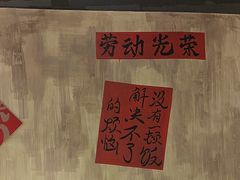 劳动光荣
没有一顿饭
解决不了
的烦恼